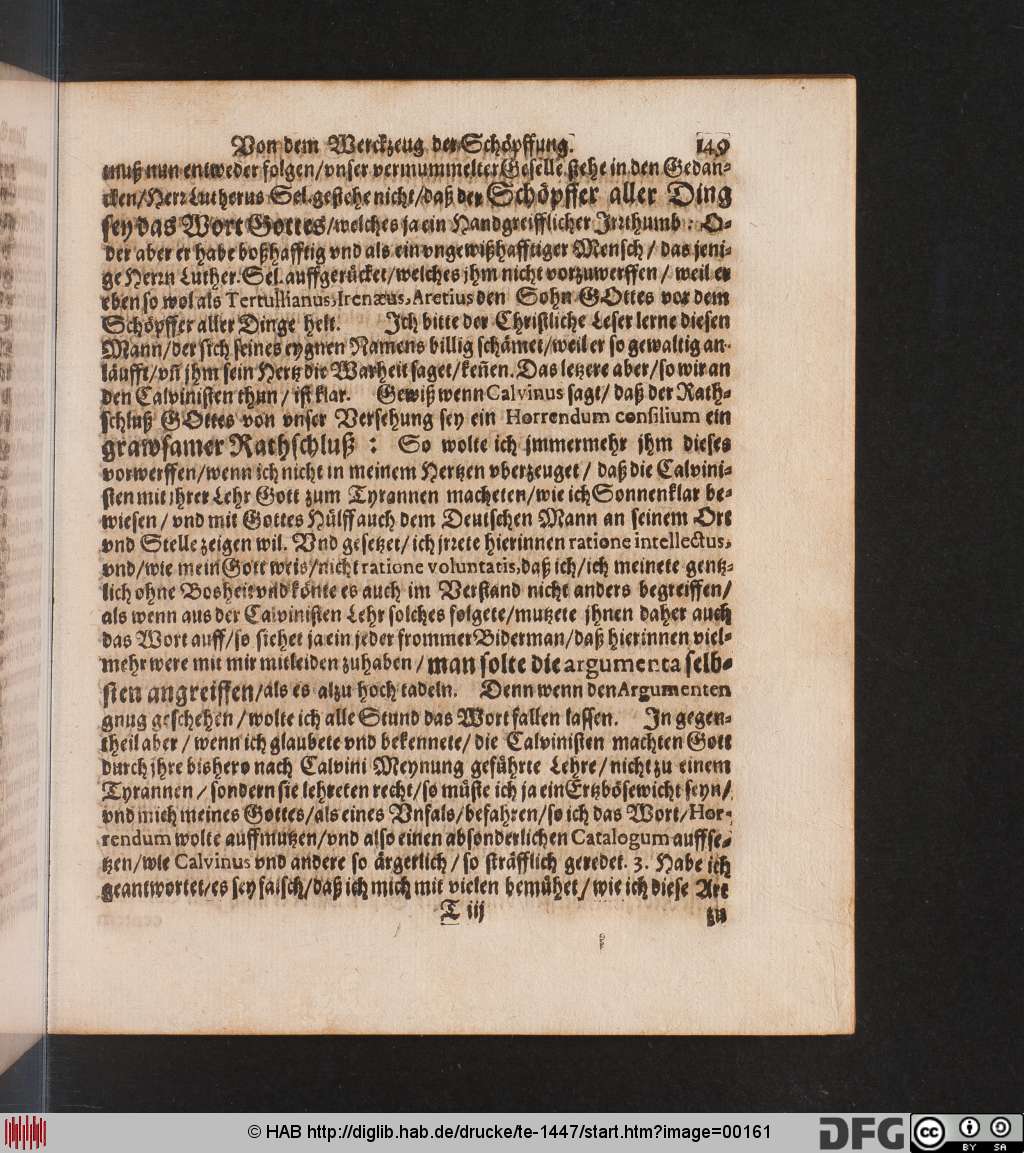 Von dem Werckzeug der Schöpffung. 149
muß nun entweder folgen/vnser vermummelter Geselle stehe in den Gedan-
cken/Herr Lutherus Sel. gestehe nicht/daß der Schöpffer aller Ding
sey das Wort Gottes/welches ja ein Handgreifflicher Irrthumb: O-
der aber er habe boßhafftig vnd als ein vngewißhafftiger Mensch/ das jeni-
ge Herrn Luther. Sel. auffgerücket/welches jhm nicht vorzuwerffen/ weil er
eben so wol als Tertullianus, Irenæus, Aretius den Sohn GOttes vor dem
Schöpffer aller Dinge helt. Ich bitte der Christliche Leser lerne diesen
Mann/der sich seines eygnen Namens billig schämet/weil er so gewaltig an-
läufft/vñ jhm sein Hertz die Warheit saget/keñen. Das letzere aber/so wir an
den Calvinisten thun/ ist klar. Gewiß wenn Calvinus sagt/ daß der Rath-
schluß GOttes von vnser Versehung sey ein Horrendum consilium ein
grawsamer Rathschluß: So wolte ich jmmermehr jhm dieses
vorwerffen/wenn ich nicht in meinem Hertzen vberzeuget/ daß die Calvini-
sten mit jhrer Lehr Gott zum Tyrannen macheten/wie ich Sonnenklar be-
wiesen/ vnd mit Gottes Hülff auch dem Deutschen Mann an seinem Ort
vnd Stelle zeigen wil. Vnd gesetzet/ ich jrrete hierinnen ratione intellectus,
vnd/wie mein Gott weis/nicht ratione voluntatis, daß ich/ich meinete gentz-
lich ohne Bosheit vnd könte es auch im Verstand nicht anders begreiffen/
als wenn aus der Calvinisten Lehr solches folgete/mutzete jhnen daher auch
das Wort auff/so siehet ja ein jeder frommer Biderman/daß hierinnen viel-
mehr were mit mir mitleiden zuhaben/ man solte die argumenta selb-
sten angreiffen/als es alzu hoch tadeln. Denn wenn den Argumenten
gnug geschehen/wolte ich alle Stund das Wort fallen lassen. In gegen-
theil aber/ wenn ich glaubete vnd bekennete/ die Calvinisten machten Gott
durch jhre bishero nach Calvini Meynung geführte Lehre/nicht zu einem
Tyrannen/ sondern sie lehreten recht/so müste ich ja ein Ertzbösewicht seyn/
vnd mich meines Gottes/als eines Vnfals/befahren/so ich das Wort/Hor-
rendum wolte auffmutzen/vnd also einen absonderlichen Catalogum auffse-
tzen/wie Calvinus vnd andere so ärgerlich/ so sträfflich geredet. 3. Habe ich
geantwortet/es sey falsch/daß ich mich mit vielen bemühet/ wie ich diese Art
T iij zu
© HAB http://diglib.hab.de/drucke/te-1447/start.htm?image=00161 DFG cc BY SA